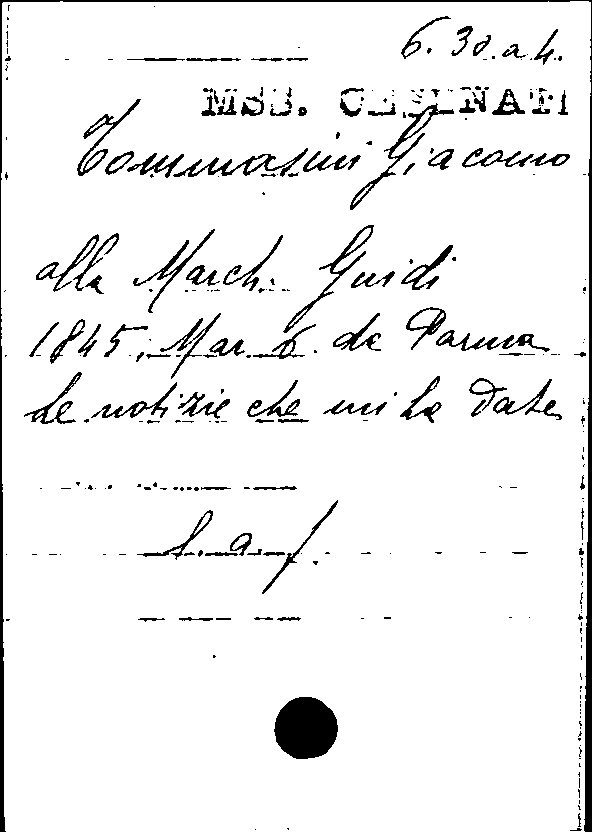 6. 30. a 4.
MSS. CESENATI
Tommasini Giacomo
alla March. Guidi
1845, Mar. 6. da Parma
Le notizie che mi ha date
l. a. f.